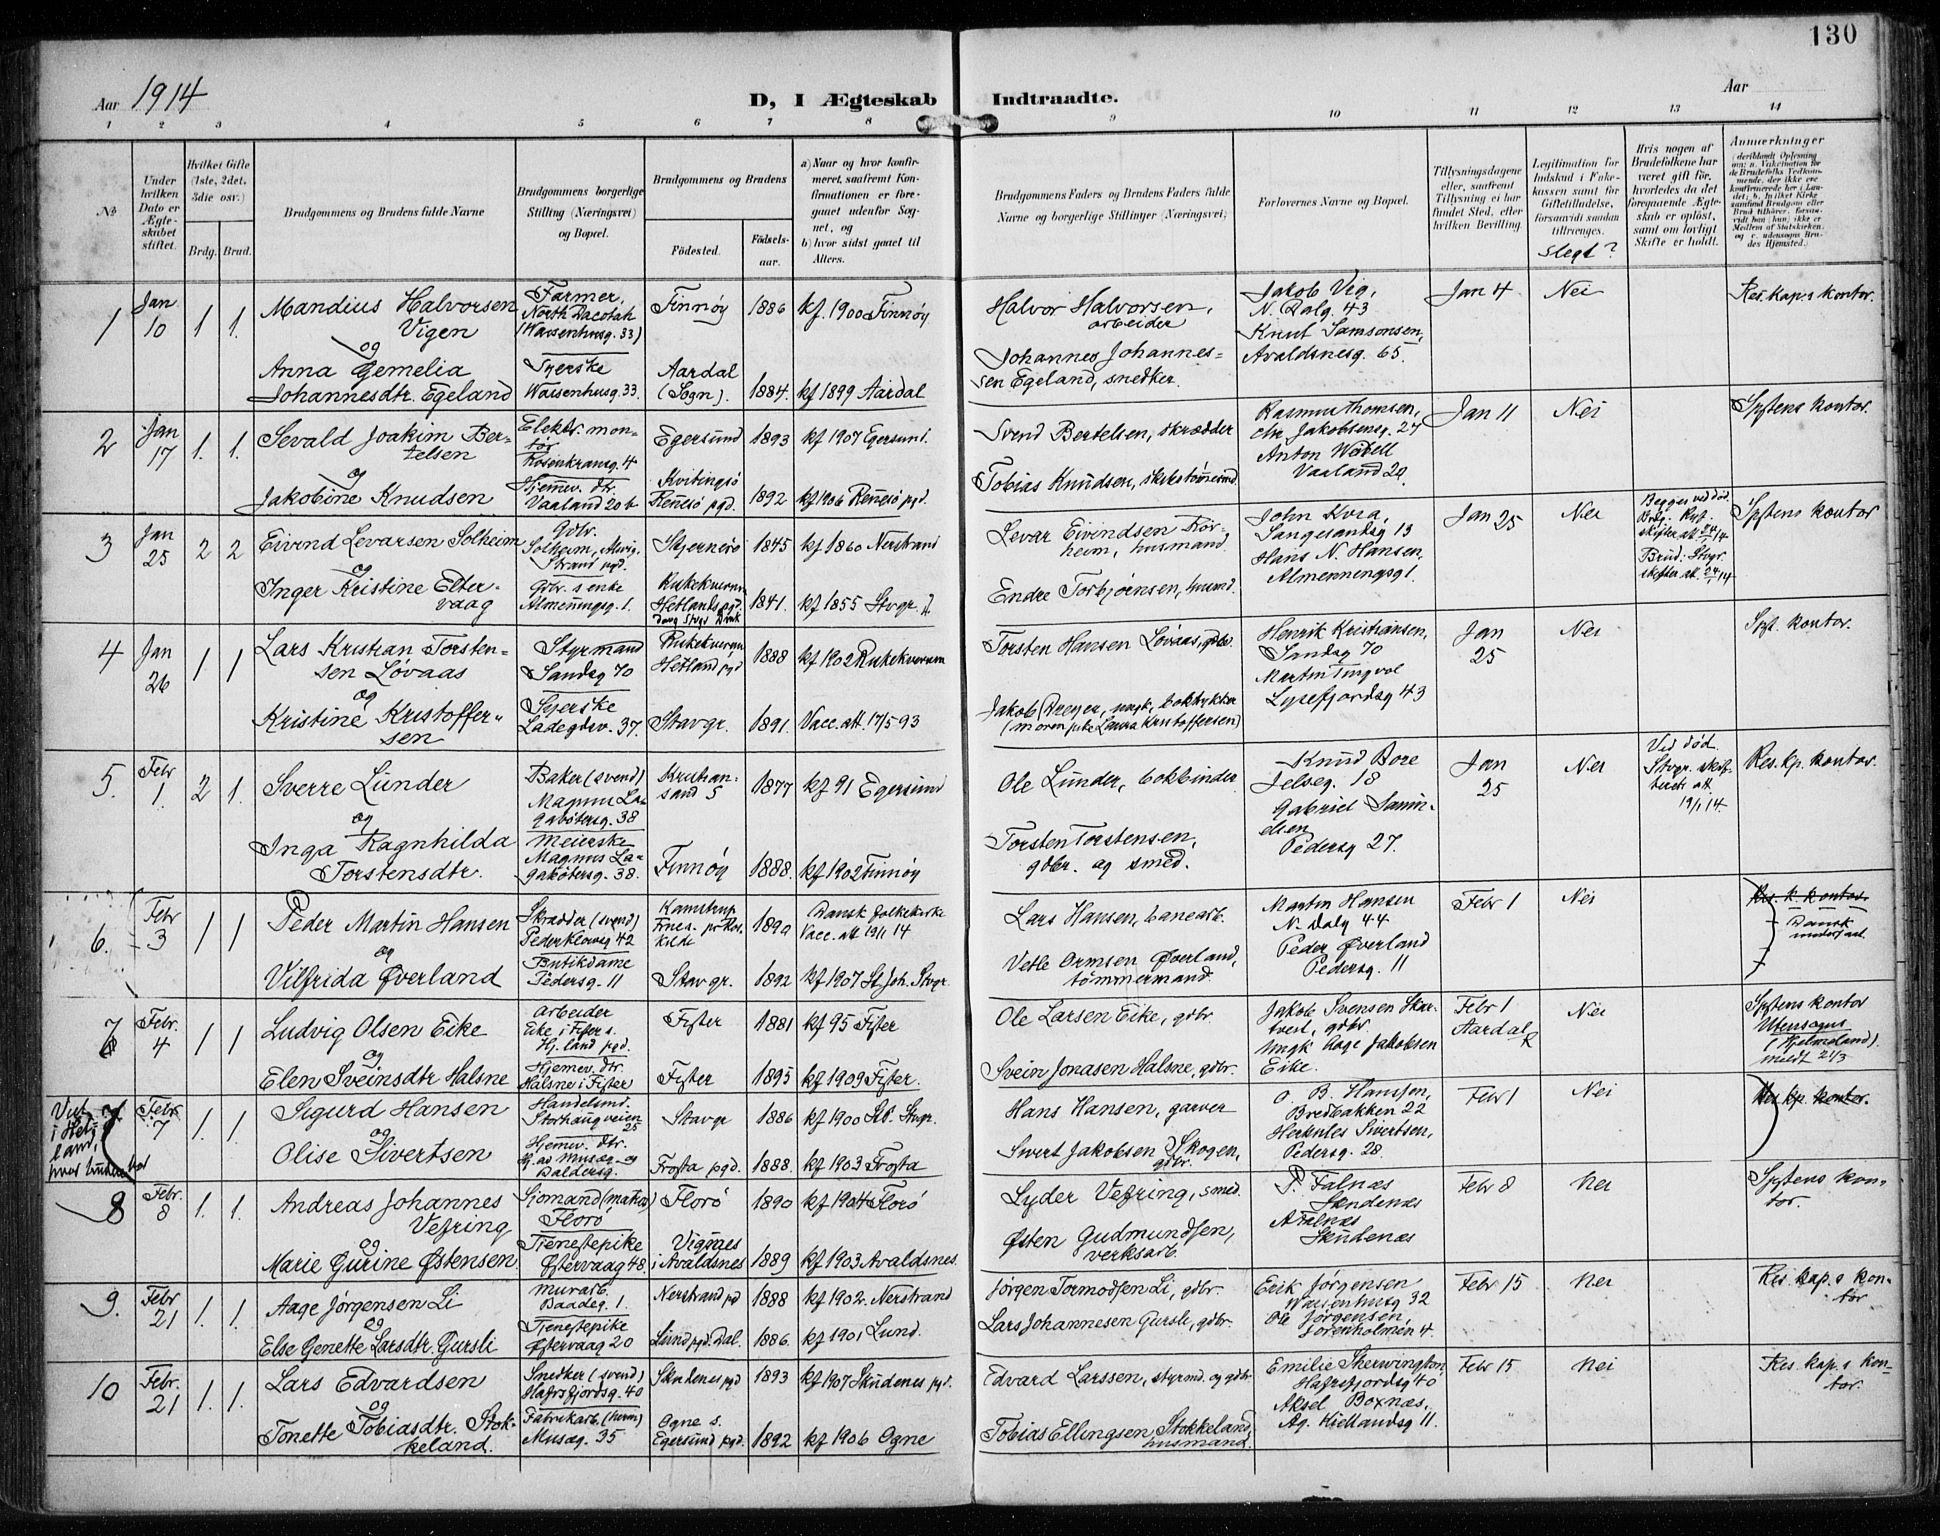 130
Aar 1914
D, I Ægteskab Indtraadte.
Aar
1 2 3 4 5 6 7 8 9 10 11 12 13 14
No
Under hvilken Dato er Ægteskabet stiftet.
Hvilket Gifte (1ste, 2det, 3die osv.)
Brdg. Brud.
Brudgommens og Brudens fulde Navne
Brudgommens borgerlige Stilling (Næringsvei) og Bopæl.
Brudgommens og Brudens
Födested.
Födselsaar.
a) Naar og hvor konfirmeret, saafremt Konfirmationen er foregaaet udenfor Sognet, og
b) hvor sidst gaaet til Alters.
Brudgommens Faders og Brudens Faders fulde Navne og borgerlige Stillinger (Næringsvei)
Forlovernes Navne og Bopæl.
Tillysningsdagene eller, saafremt Tillysning ei har fundet Sted, efter hvilken Bevilling.
Legitimation for Indskud i Enkekassen samt for Giftetilladelse, forsaavidt saadan tiltrænges.
Slegt?
Hvis nogen af Brudefolkene har været gift för, hvorledes da det foregaaende Ægteskab er oplöst, samt om lovligt Skifte er holdt.
Anmærkninger
1
Jan 10
1 1.
Mandius Halvorsen Vigen
og
Anna Gemelia
Johannesdtr. Egeland
Farmer,
North Dacotah
(Waisenhusg. 33)
Syerske
Waisenhusg. 33.
Finnöy
Aardal
(Sogn).
1886
1884.
kf. 1900 Finnöy
kf 1899 Aardal
Halvor Halvorsen,
arbeider
Johannes Johannes=
sen Egeland, snedker.
Jakob Vig,
N. Dalg. 43
Knut Samsonsen,
Avaldsnesg. 65.
Jan 4
Nei
Res. kap.s kontor.
2
Jan 17
1. 1.
Sevald Joakim Ber=
telsen
og
Jakobine Knudsen
Elektr. mon=
tör
Rosenkransg. 4
Hjemmev. dtr.
Vaaland 20 b
Egersund
Kvitingsö
Rennesö pgd.
1893
1892
kf 1907 Egersund.
kf 1906 Rennesö pgd.
Svend Bertelsen, skrædder
Tobias Knudsen, skibstömmermd.
Rasmus Thomsen,
chr Jakobsensg. 27
Anton Wodell
Vaaland 20.
Jan 11
Nei
Spstens kontor.
3
Jan 25
2 2
Eivind Levarsen Solheim
og
Inger Kristine Elter-
vaag
Gdbr.
Solheim,
Strand pgd.
Gdbr.s enke
Almenningsg. 1.
Stjernerö
Riskekverum
Hetland pgd.
1845
1841.
kf 1860 Nerstrand
kf 1855 Stvgr.
Levar Eivindsen
husmand.
Endre Torbjörnsen, husmd.
John Kvia,
Sangesandsg 13
Hans N. Hansen,
Almenningsg 1.
Jan 25
Nei
Begges ved död.
Brdg: Ryf.
skifteratt. 24/1 14
Brud: Stvgr
skifter att. 24/1 14
Spstens kontor
4
Jan 26
1 1
Lars Kristian Torsten=
sen Løvaas
og
Kristine Kristoffer=
sen
Styrmand
Sandsg 70
Syerske
Ladegdsv. 37.
Riskekverum
Hetland pgd
Stavgr.
1888
1891.
kf 1902 Riskekverum
Vacc. att. 17/5 93
Torsten Hansen Løvaas, gdbr.
Jakob Dreyer, ungk, boktrykker
(moren pike Laura Kristoffersen)
Henrik Kristiansen,
Sandsg 70
Martin Tingvol
Lysefjordsg 43
Jan 25
Nei
Spst. kontor.
5.
Febr 1.
2 1.
Sverre Lunder
og
Inga Ragnhilda
Torstensdtr.
Baker (svend)
Magnus La=
gabötersg. 38
Meierske
Magnus La=
gabötersg. 38.
Kristian=
sand S
Finnöy
1877
1888.
kf 91 Egersund
kf 1902 Finnöy
Ole Lunder, bokbinder
Torsten Torstensen,
gdbr. og smed.
Knud Bore
Jelseg. 18
Gabriel Samu=
elsen
Pedersg 27.
Jan 25
Nei
Ved död.
Stvgr. skif=
terett att.
19/1 14
Res. kp. kontor.
6.
Febr 3
1 1
Peder Martin Hansen
og
Vilfrida Øverland
Skrædder (svend)
Peder Klowsg 42
Butikdame
Pedersg. 11
Kamstrup
Stavgr.
1890
1892
Dansk folkekirke
Vacc. att 19/1 14
kf 1907 St. Joh. Stvgr.
Lars Hansen, banearb.
Vetle Ormsen Øverland,
tömmermand.
Martin Hansen
N. Dalg 44
Peder Øverland
Pedersg. 11
Febr 1
Nei
Res. k. kontor.
Dansk
undersaat.
7
Febr. 4
1 1
Ludvig Olsen Eike
og
Elen Sveinsdtr Halsne
Arbeider
Eike i Fister s.
Hj.land pgd.
Hjemmev. dtr.
Halsne i Fister
Fister
Fister
1881
1895
kf 95 Fister
kf 1909 Fister.
Ole Larsen Eike, gdbr.
Svein Jonasen Halsne, gdbr.
Jakob Svensen Skar=
tveit, gdbr.
Ungk Aage Jakobsen
Eike.
Febr 1
Aardal
Nei
Spstens kontor
Utensogns
(Hjelmeland).
meldt 21/3
Viet
i Het=
land,
hvor bruden bor
Febr 7
1. 1.
Sigurd Hansen
og
Olise Sivertsen
Handelsmd.
Storhaugveien
25
Hjemmev. dtr.
Hj. av Musæg. og
Baldersg.
Stavgr
Frosta pgd.
1886
1888.
kf 1900 Stvgr.
kf 1903 Frosta
Hans Hansen, garver
Sivert Jakobsen Skogen,
gdbr.
O. B. Hanssen,
Bredbakken 22
Herkules Sivertsen,
Pedersg. 28.
Febr 1
Nei
Res. kp. kontor.
8
Febr. 8
1. 1.
Andreas Johannes
Vefring
og
Marie Gurine Østensen
Sjömand (matros)
Florö
Tjenestepike
Østervaag 48.
Florö
Vignæs
i Avaldsnes
1890
1889
kf 1904 Florö
kf 1903 Avaldsnes.
Lyder Vefring, smed.
Østen Gudmundsen,
verksarb.
P. Falnæs
Skudenæs
A. Falnæs
Skudenæs
Febr 8
Nei
Spstens kon=
tor.
9.
Febr 21
1. 1.
Aage Jörgensen Li
og
Else Genette Larsdtr. Gursli
Murarb.
Baadeg. 1.
Tjenestepike
Østervaag 20
Nerstrand pd
Lund pgd. Dal.
1888
1886.
kf 1902. Nerstrand
kf 1901 Lund.
Jörgen Tormodsen Li, gdbr.
Lars Johannesen Gursli, gdbr.
Erik Jörgensen
Waisenhusg 32
Ole Jörgensen,
Sörenholmen 4.
Febr 15
Nei
Res. kap.s kon=
tor
10
Febr. 21
1. 1.
Lars Edvardsen
og
Tonette Tobiasdtr. Stok=
keland.
Snedker (svend)
Hafrsfjordsg. 40
Fabrikarb. (herm)
Musæg. 35
Skudenes pgd
Ogne s.
Egersund pgd.
1893
1892
kf 1907 Skudenes pgd.
kf 1906 Ogne
Edvard Larssen, styrmd. og gdbr
Tobias Ellingsen Stokkeland,
husmand.
Emilie Sherwington
Hafrsfjordsg 40
Aksel Boxnæs,
Ag. Hiellandsg 11.
Febr 15
Nei
Res. kap.s kon=
tor.